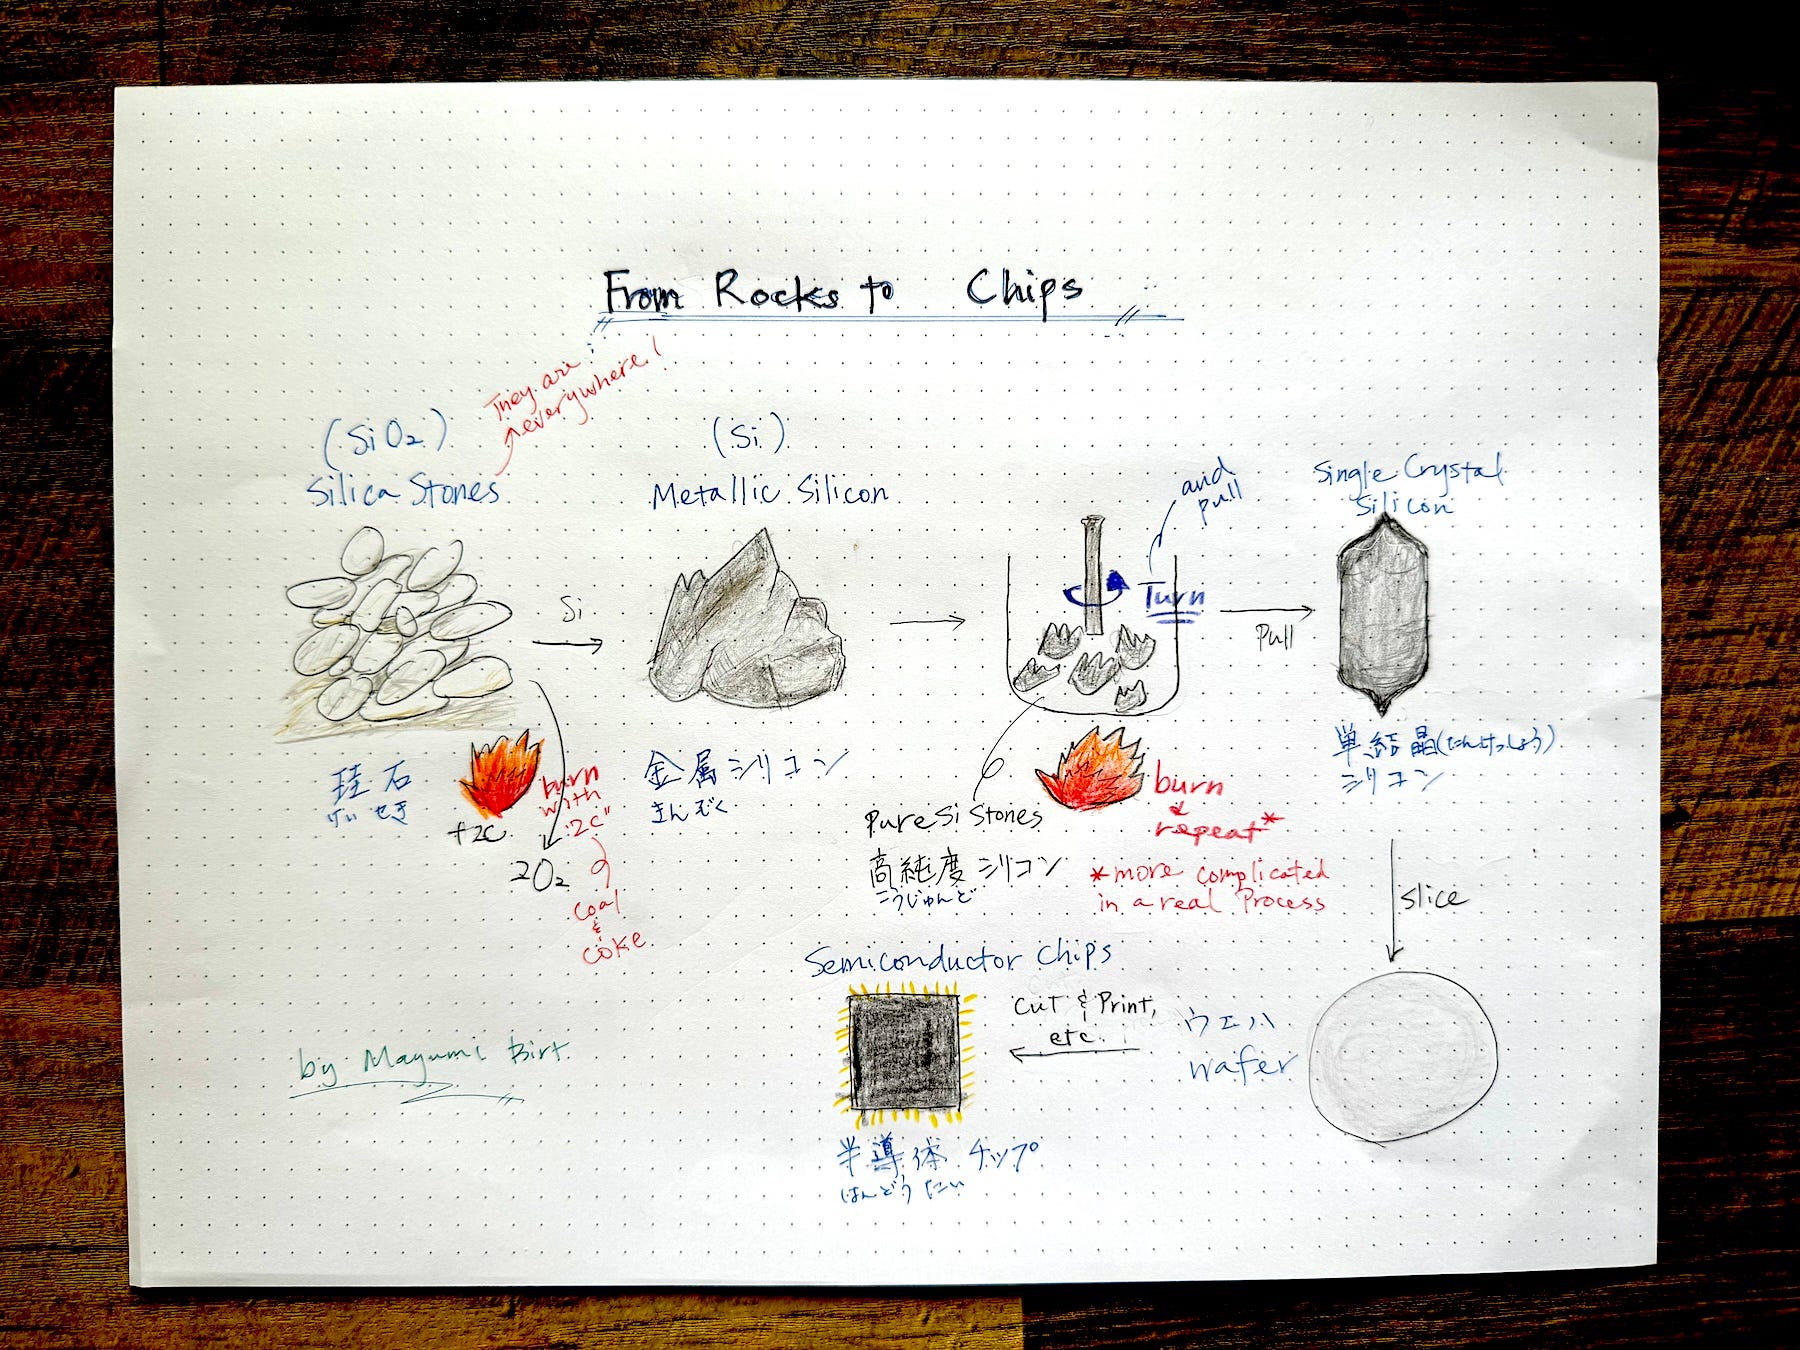 From Rocks to Chips
They are
everywhere!
(SiO₂)
Silica Stones
Si
珪石
けいせき
+2C
2O₂
burn
with
"2C"
coal
&
coke
(Si)
Metallic Silicon
金属シリコン
きんぞく
and
pull
Turn
Pure Si Stones
高純度シリコン
こうじゅんど
burn
&
repeat*
*more complicated
in a real Process
Pull
Single Crystal
Silicon
単結晶(たんけっしょう)
シリコン
slice
ウエハ
wafer
Cut & Print,
etc.
Semiconductor Chips
半導体チップ
はんどうたい
by Mayumi Birt